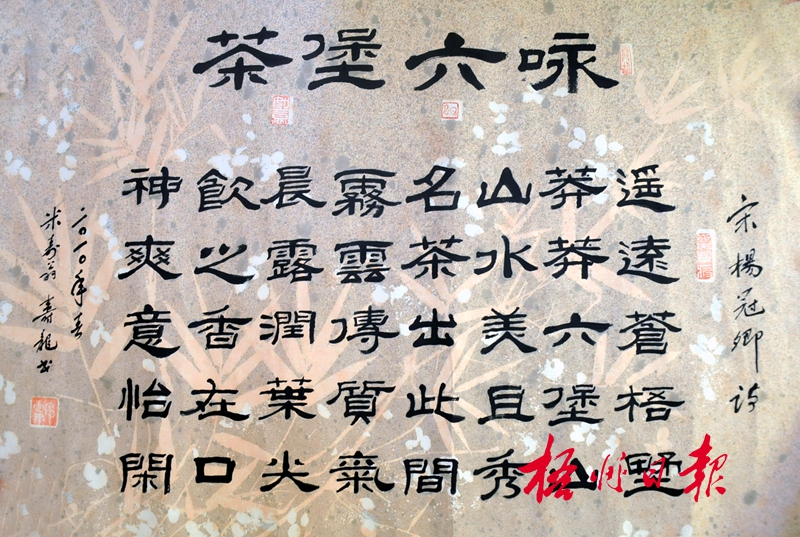 咏六堡茶
宋楊冠卿诗
遥遠蒼梧墅
莽莽六堡山
山水美且秀
名茶出此間
霧雲傳質氣
晨露潤葉尖
飲之香在口
神爽意怡閑
二〇一〇年春
米寿翁 壽龍书
梧州日報